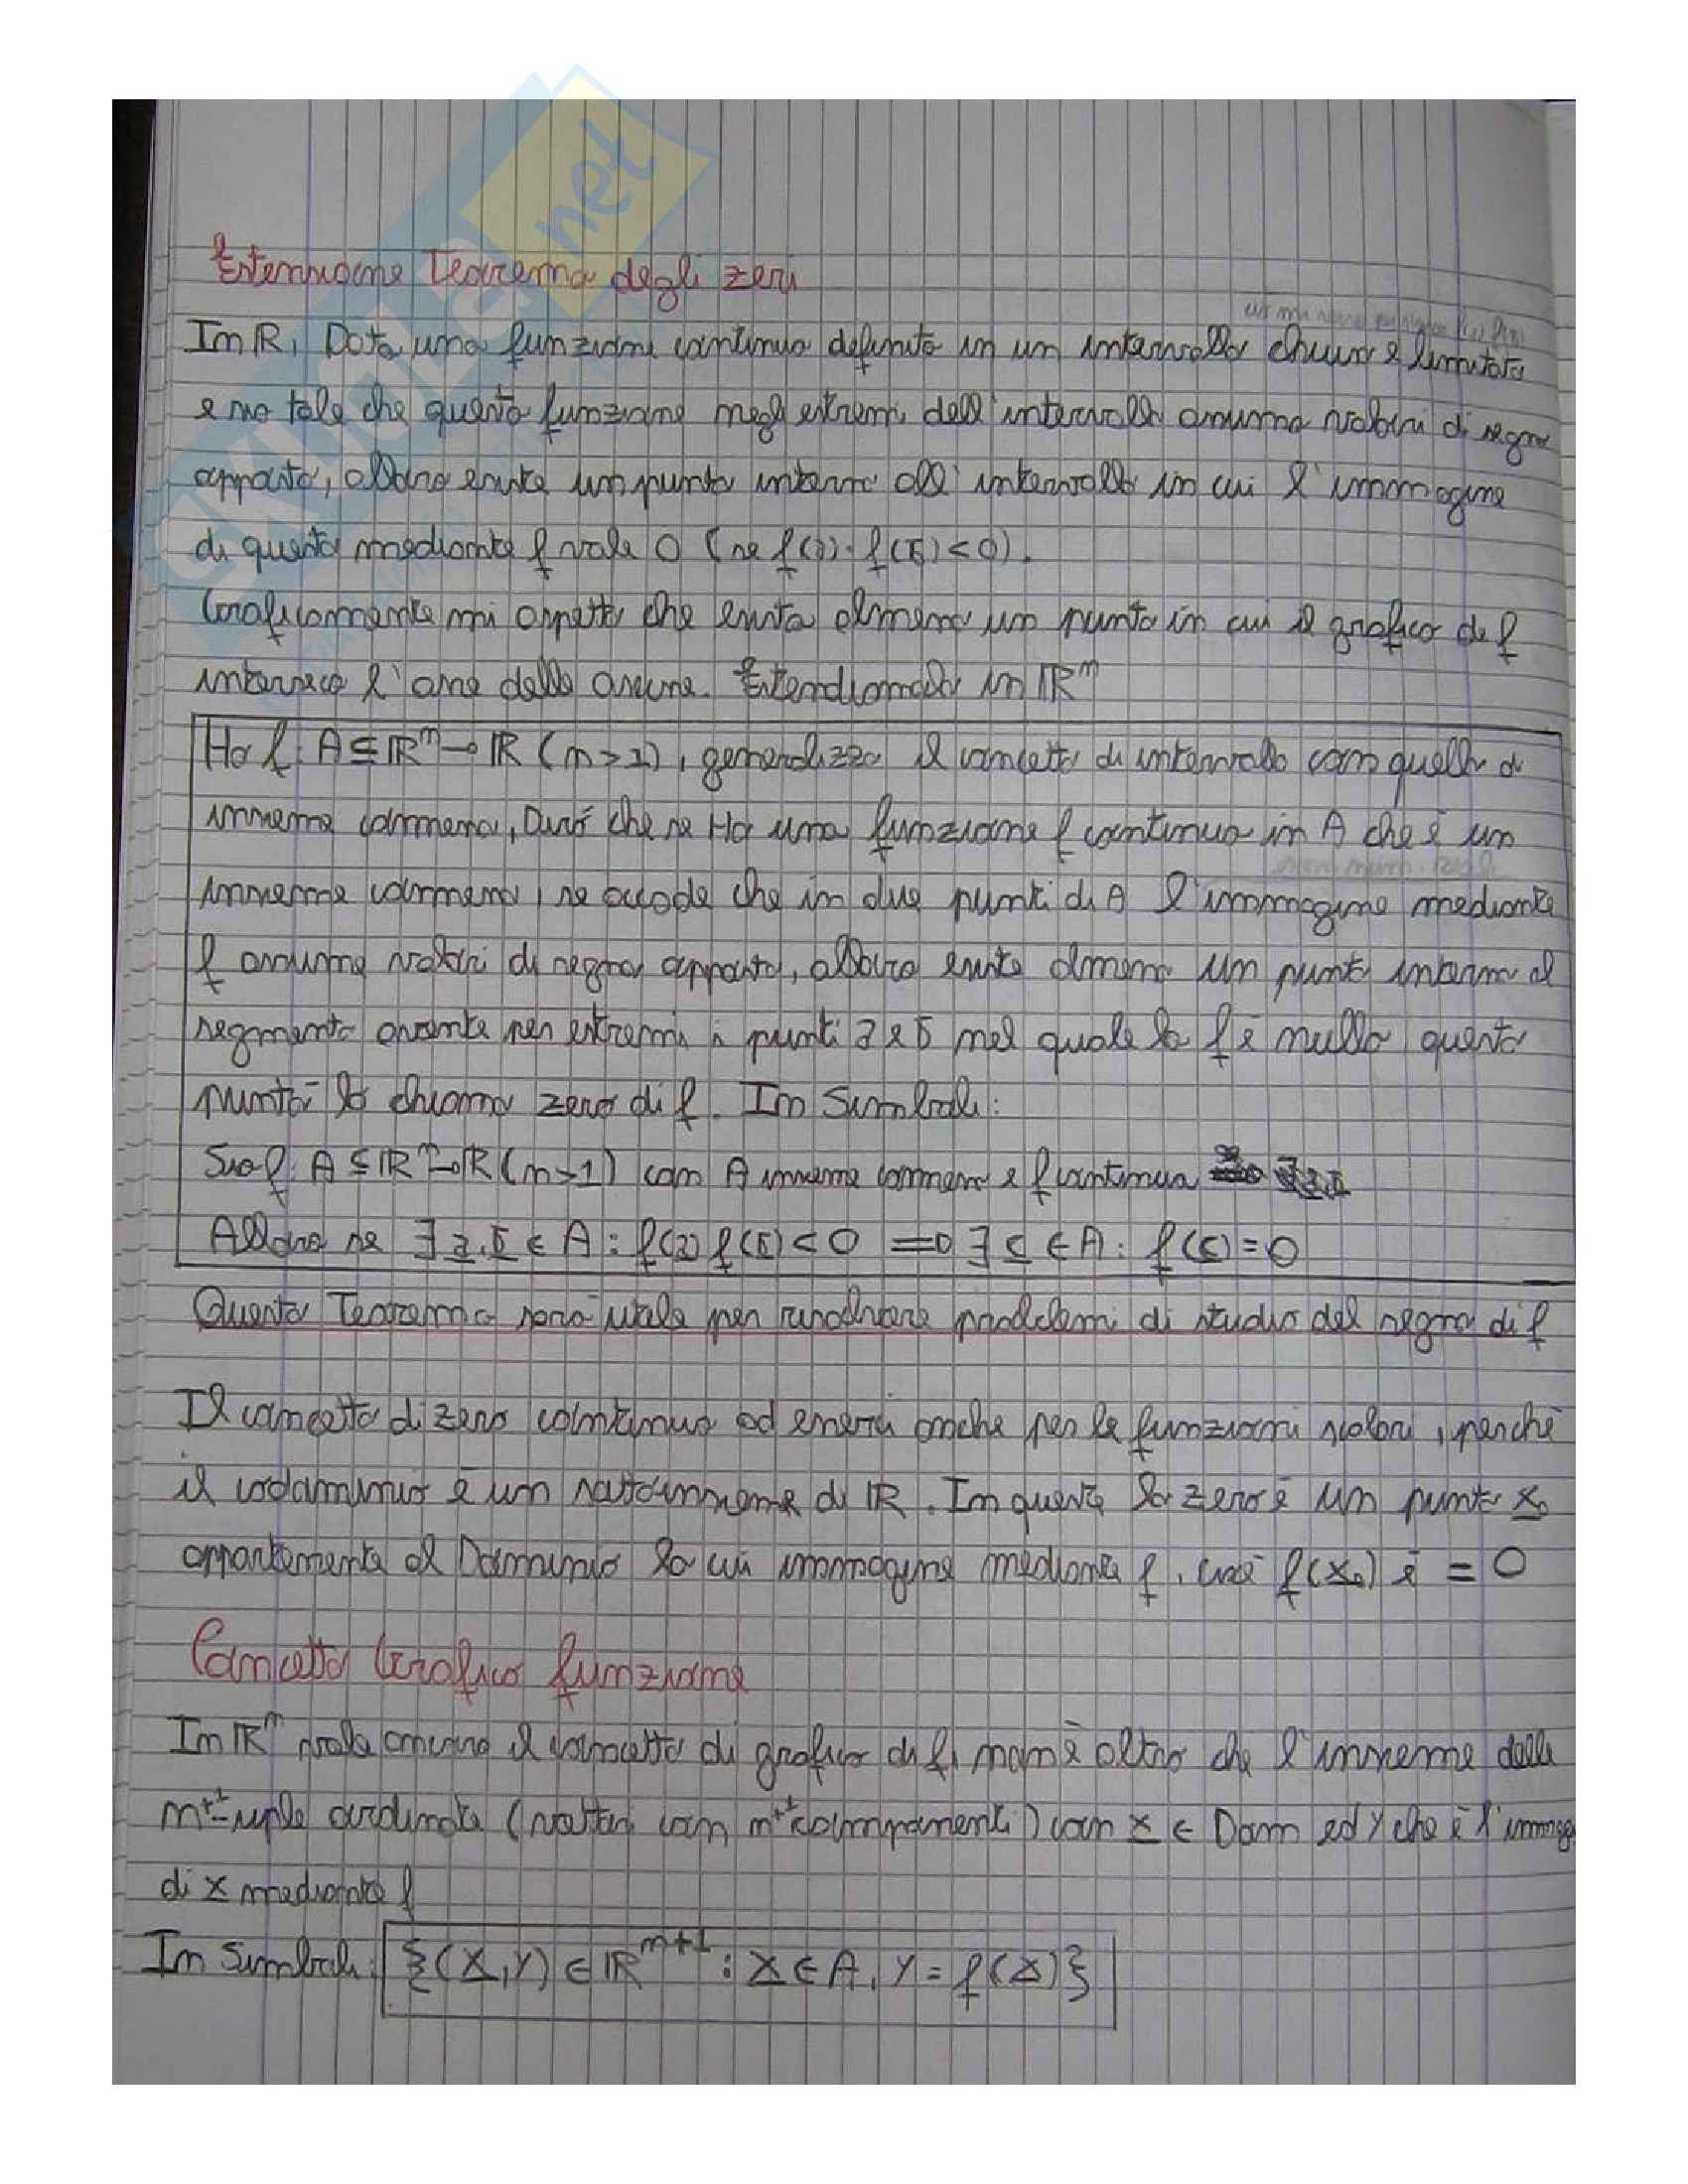 Estensione Teorema degli zeri
In R, Data una funzioni continua definita in un intervallo chiuso e limitato
e sia tale che questa funzione negli estremi dell'intervallo assuma valori di segno
opposto, allora esiste un punto interno all'intervallo in cui l'immagine
di questo mediante f vale 0 (se f(a)·f(b)<0).
Graficamente mi aspetto che esista almeno un punto in cui il grafico de f
interseca l'asse delle ascisse. Estendiamolo in ℝⁿ
Ho f: A⊆ℝⁿ→ℝ (n>1), generalizzo il concetto di intervallo con quello di
insieme connesso, Dirò che se Ho una funzione f continua in A che è un
insieme connesso, se accade che in due punti di A l'immagine mediante
f assume valori di segno opposto, allora esiste almeno un punto interno al
segmento avente per estremi i punti a e b nel quale la f è nulla questo
punto lo chiamo zero di f. In Simboli:
Sia f: A⊆ℝⁿ→ℝ (n>1) con A insieme connesso e f continua
Allora se ∃ a, b ∈ A : f(a) f(b) < 0 ⇒ ∃ c ∈ A : f(c) = 0
Questo Teorema sarà utile per risolvere problemi di studio del segno di f
Il concetto di zero continua ad esserci anche per le funzioni scalari, perché
il codominio è un sottoinsieme di ℝ. In questo lo zero è un punto x₀
appartenente al Dominio la cui immagine mediante f, cioè f(x₀) è = 0
Concetto Grafico funzione
In ℝⁿ vale ancora il concetto di grafico di f, non è altro che l'insieme delle
n+1-uple ordinate (vettori con n+1 componenti) con x ∈ Dom ed y che è l'immag
di x mediante f
In Simboli: {(x, y) ∈ ℝⁿ⁺¹ : x ∈ A, y = f(x)}
SKUOLA.net